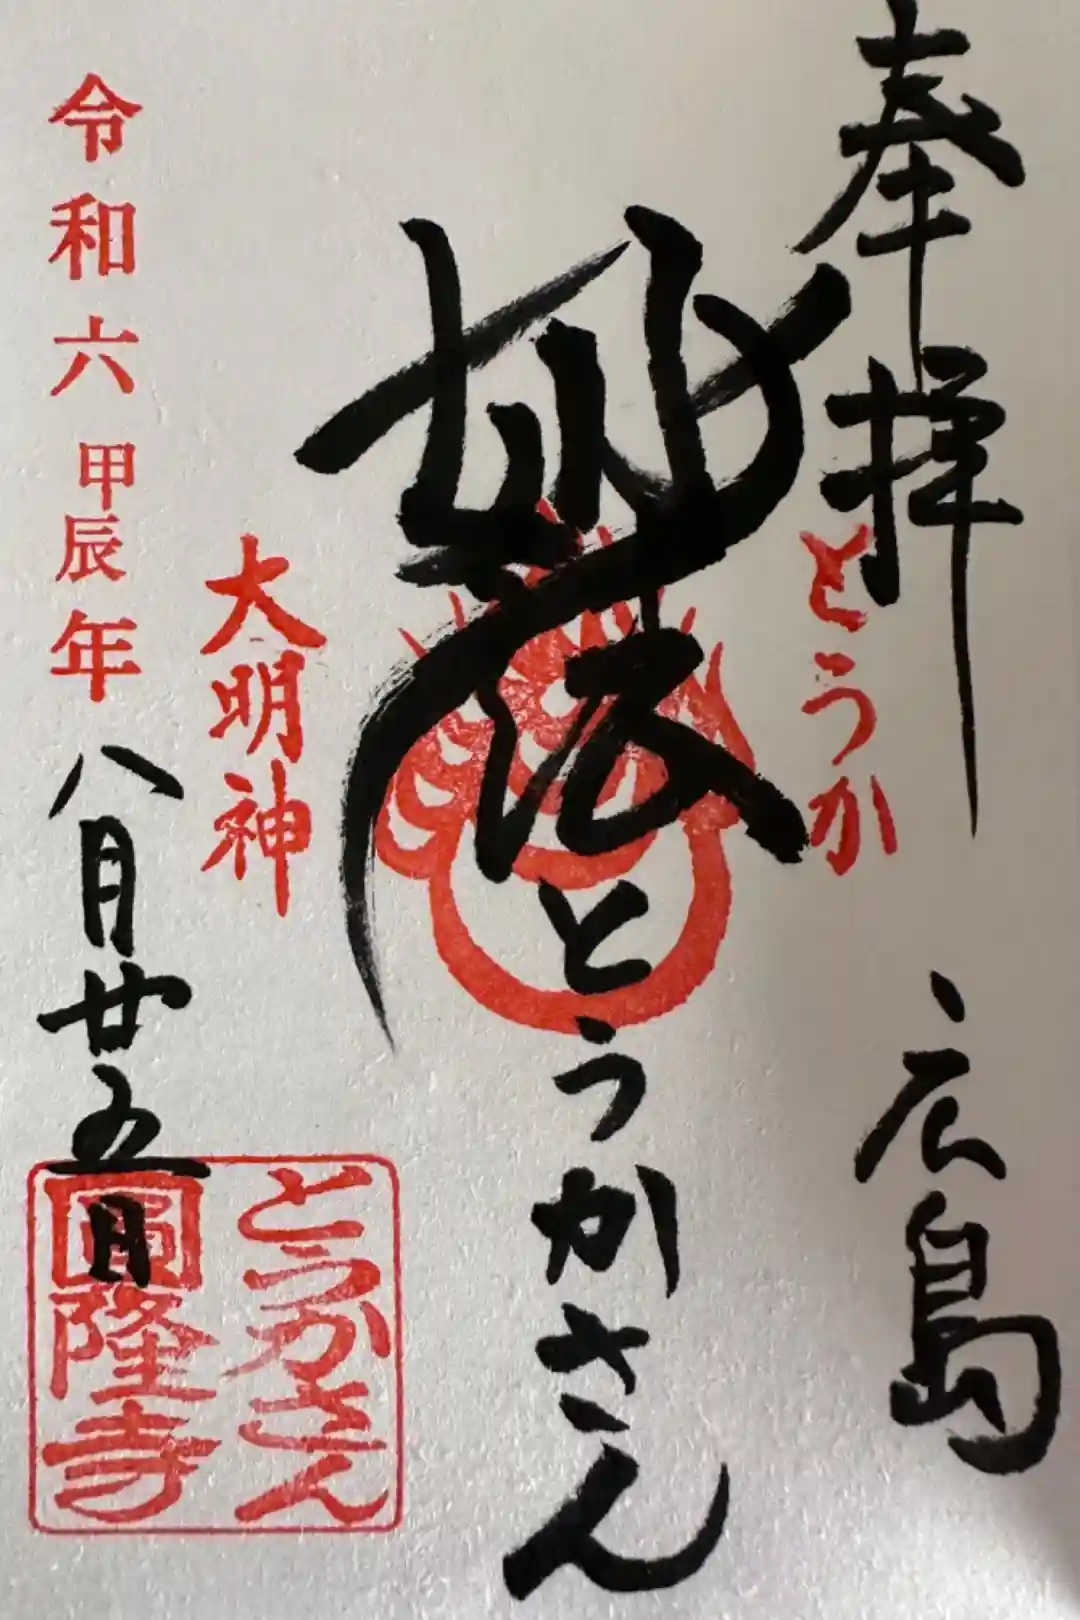 奉拝
広島
とうか
妙法
とうかさん
大明神
令和六甲辰年八月廿五日
とうかさん
圓隆寺